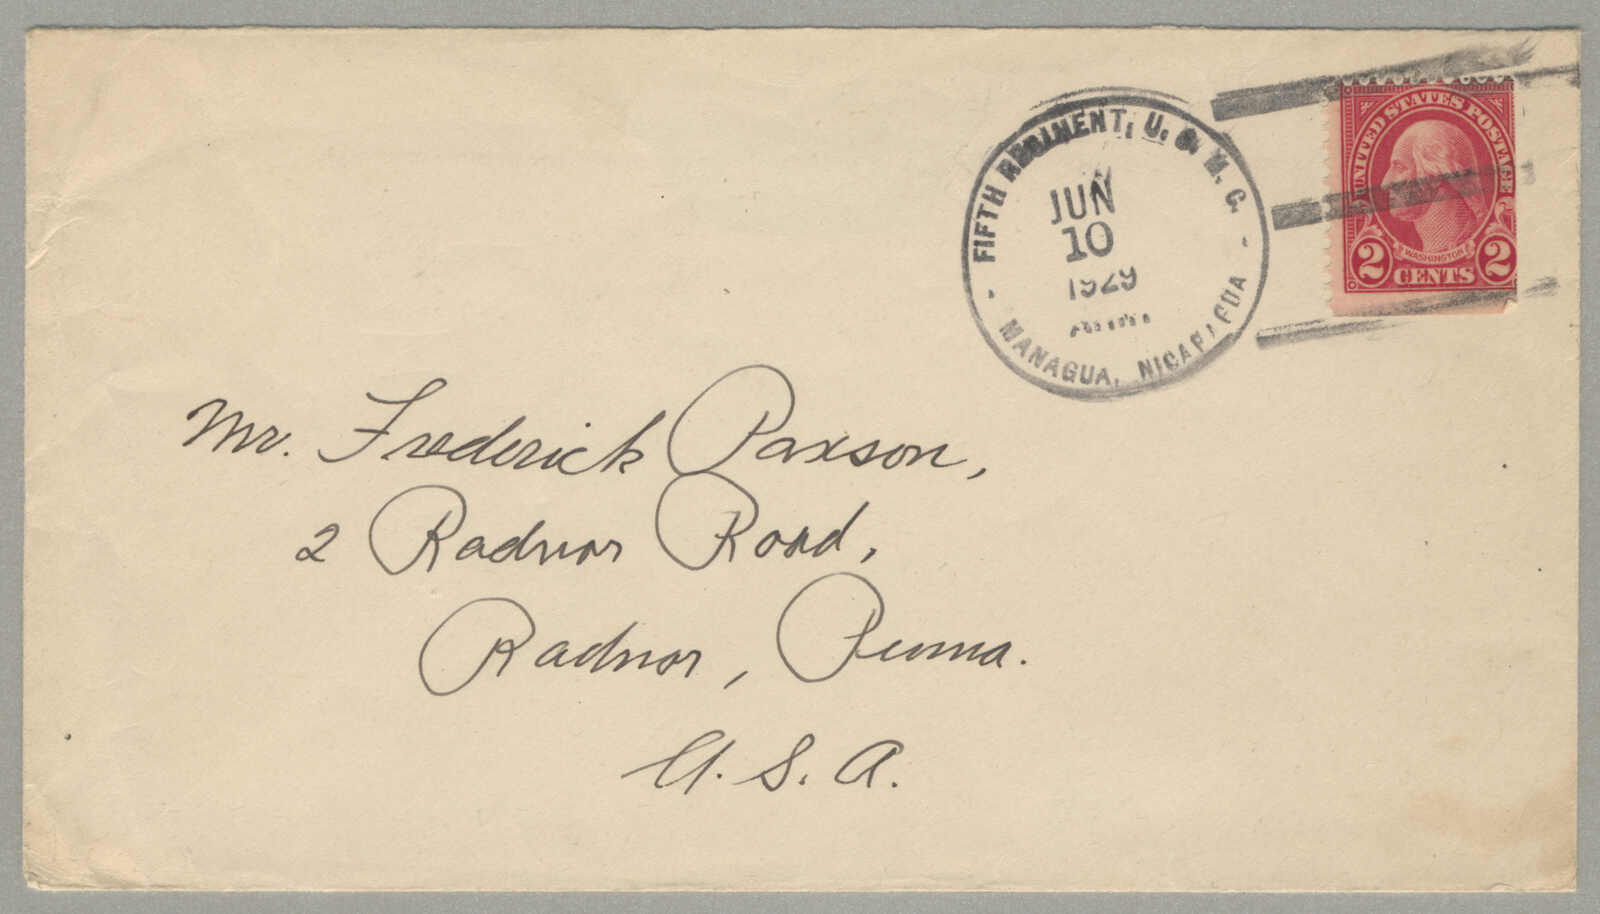 FIFTH REGIMENT, U. S. M. C.
JUN
10
1929
- MANAGUA, NICARAGUA -
UNITED STATES POSTAGE
WASHINGTON
2 CENTS 2
Mr. Frederick Paxson,
2 Radnor Road,
Radnor, Penna.
U. S. A.